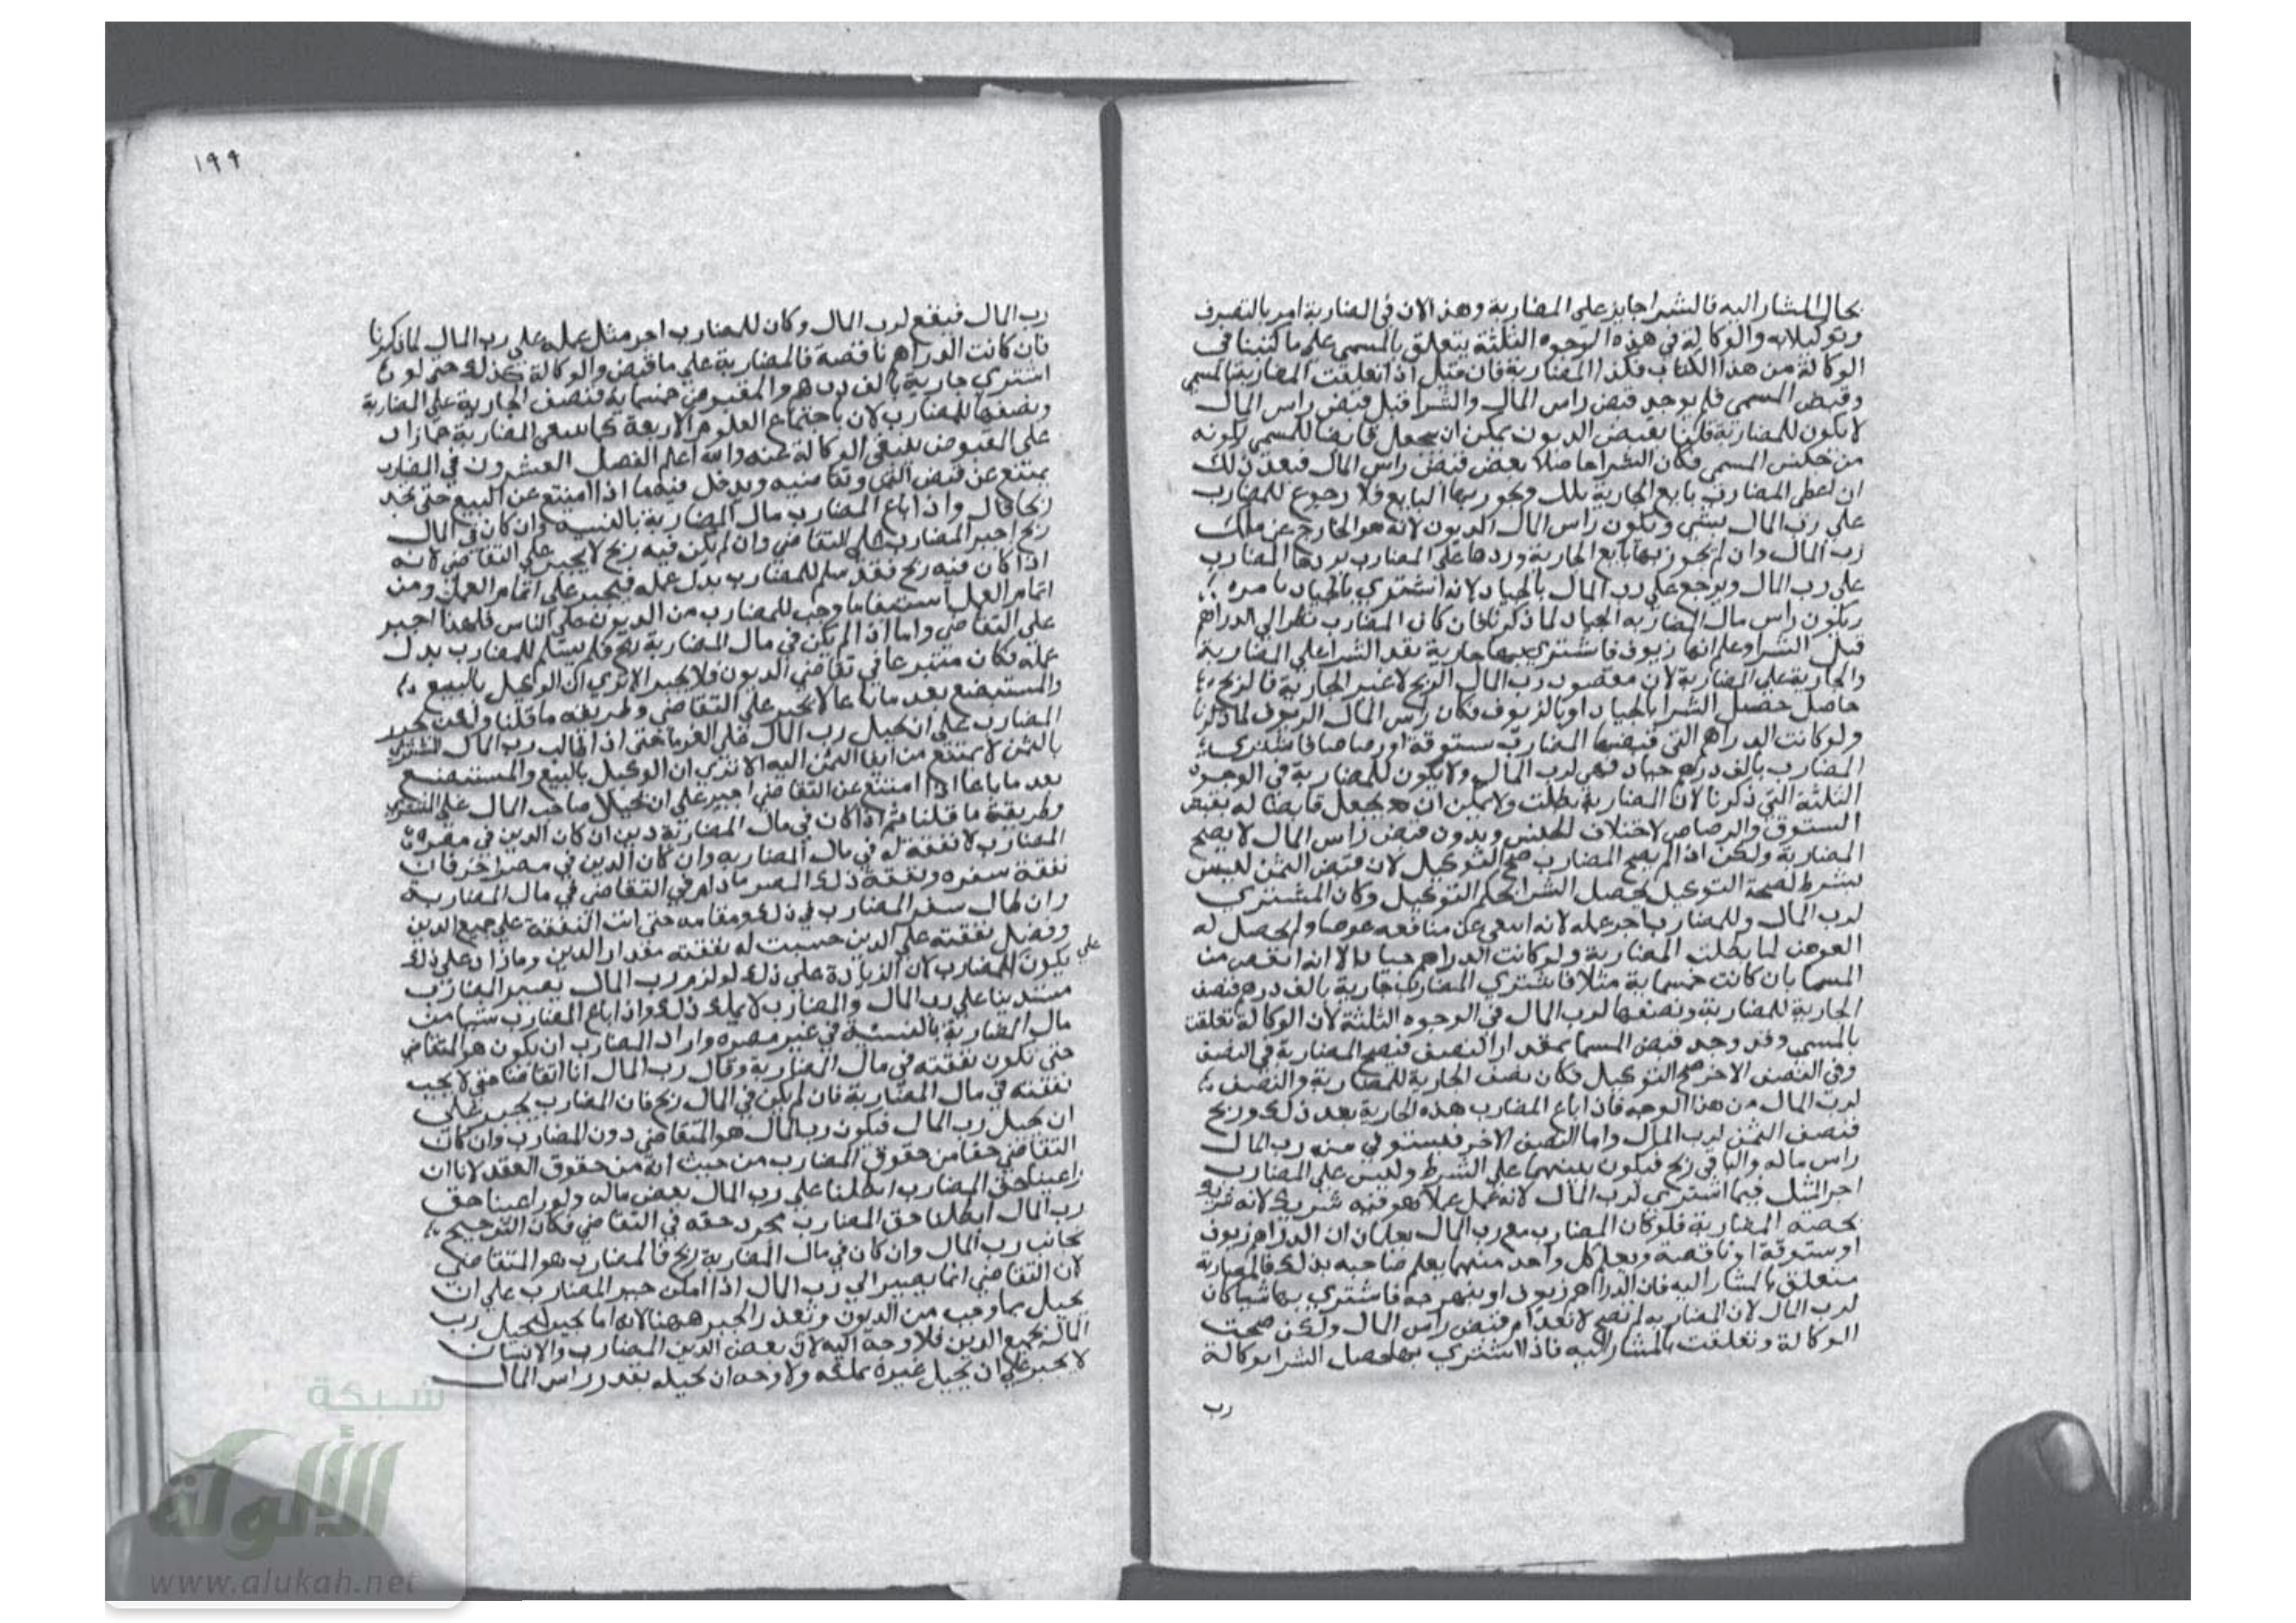 بحال المشار اليه فالشرا جايز على المضاربة وهذا لان في المضاربة امر بالتصرف
وتوكيلا به والوكالة في هذه الوجوه الثلثة يتعلق بالمسمى على ما كتبنا في
الوكالة من هذا الكتاب فكذا المضاربة فان قيل اذا تعلقت المضاربة بالمسمى
وقبض المسمى فلم يوجد قبض راس المال والشرا قبل قبض راس المال
لا يكون للمضاربة قلنا بقبض الديون يمكن ان يجعل قابضا للمسمى لكونه
من جنس المسمى فكان الشرا حاصلا بعض قبض راس المال فبعد ذلك
ان اعطى المضارب بايع الجارية تلك وتجوز بها البايع فلا رجوع للمضارب
على رب المال بشي ويكون راس المال الديون لانه هو الخارج عن ملك
رب المال وان لم يجوز بها بايع الجارية وردها على المضارب يردها المضارب
على رب المال ويرجع على رب المال بالجياد لانه اشترى بالجياد بامره
ويكون راس مال المضاربه الجياد لما ذكرنا فان كان المضارب نظر الي الدراهم
قبل الشرا وعلم انها زيوف فاشترى بها جارية نفذ الشرا على المضاربة
والجارية على المضاربة لان مقصود رب المال الربح لا غير الجارية فالربح
حاصل حصل الشرا بالجياد او بالزيوف فكان راس المال الزيوف لما ذكرنا
ولو كانت الدراهم التي قبضها المضارب ستوقة او رصاصا فاشترى
المضارب بالف درهم جياد فهي لرب المال ولا يكون للمضاربة في الوجوه
الثلثة التي ذكرنا لان المضاربة بطلت ولا يمكن ان يجعل قابضا له بقبض
الستوق والرصاص لاختلاف الجنس وبدون قبض راس المال لا يصح
المضاربة ولكن اذا لم يصح المضارب صح التوكيل لان قبض الثمن ليس
بشرط لصحة التوكيل يحصل الشرا بحكم التوكيل وكان المشترى
لرب المال وللمضارب اجر عمله لانه ابتغى عن منافعه عوضا ولم يحصل له
العوض لما بطلت المضاربة ولو كانت الدراهم جيادا الا انه انقص من
المسما بان كانت خمسماية مثلا فاشترى المضارب جارية بالف درهم فنصف
الجارية للمضاربة ونصفها لرب المال في الوجوه الثلثة لان الوكالة تعلقت
بالمسمى وقد وجد قبض المسما بمقدار النصف فتصح المضاربة في النصف
وفي النصف الاخر صح التوكيل فكان نصف الجارية للمضاربة والنصف
لرب المال من هذا الوجه فاذا باع المضارب هذه الجارية بعد ذلك وربح
فنصف الثمن لرب المال واما النصف الاخر فيستوفي منه رب المال
راس ماله والباقي ربح فيكون بينهما على الشرط وليس على المضارب
اجر المثل فيما اشترى لرب المال لانه عمل عملا هو فيه شريك لانه شريك
بحصته المضاربة فلو كان المضارب مع رب المال يعلمان ان الدراهم زيوف
او ستوقة او ناقصة ويعلم كل واحد منهما بعلم صاحبه بذلك فالمضاربة
متعلق بالمشار اليه فان الدراهم زيوف او بنهرجه فاشترى بها شيا كان
لرب المال لان المضاربه لم تصح لانعدام قبض راس المال ولكن صحت
الوكالة وتعلقت بالمشار اليه فاذا اشترى بها حصل الشرا بوكالة
رب
١٩٩
رب المال فيقع لرب المال وكان للمضارب اجر مثل عمله على رب المال لما ذكرنا
فان كانت الدراهم ناقصة فالمضاربة على ما قبض والوكالة كذلك حتى لو
اشترى جارية بالف درهم والمقبوض خمسماية فنصف الجارية على المضاربة
ونصفها للمضارب لان باجتماع العلوم الاربعة المضاربة
على المقبوض ينتفي الوكالة عنه والله اعلم الفصل العشرون في المضارب
يمتنع عن قبض الثمن وتقاضيه ويدخل فيه ما اذا امتنع عن البيع حتى يجد
ربحا قال واذا باع المضارب مال المضاربة بالنسية وان كان في المال
ربح اجبر المضارب على التقاضي وان لم يكن فيه ربح لا يجبر على التقاضي لانه
اذا كان فيه ربح فقد سلم للمضارب بدل عمله فيجبر على اتمام العمل ومن
اتمام العمل استيفا ما وجب للمضارب من الديون على الناس فلهذا اجبر
على التقاضي واما اذا لم يكن في مال المضاربة ربح فلم يسلم للمضارب بدل
عمله فكان متبرعا في تقاضي الديون فلا يجبر الا ترى ان الوكيل بالبيع
والمستبضع بعد ما باعا لا يجبر على التقاضي وطريقه ما قلنا ولكن يجبر
المضارب على ان يحيل رب المال على الغرما حتى اذا طالب رب المال المشتري
بالثمن لا يمتنع من ايفا الثمن اليه الا ترى ان الوكيل بالبيع والمستبضع
بعد ما باعا اذا امتنع عن التقاضي اجبر على ان يحيلا صاحب المال على المشتري
وطريقة ما قلنا ثم اذا كان في مال المضاربة دين ان كان الدين في مصره
المضارب لا نفقة له في مال المضاربه وان كان الدين في مصر اخر فان
نفقة سفره ونفقة ذلك المصر ما دام في التقاضي في مال المضاربة
وان طال سفر المضارب في ذلك ومقامه حتى اتت النفقة على جميع الدين
وفضل نفقته على الدين حسبت له نفقته مقدار الدين وما زاد على ذلك
على
يكون للمضارب لان الزيادة على ذلك لو لزم رب المال يصير المضارب
مستدينا على رب المال والمضارب لا يملك ذلك واذا باع المضارب شيا من
مال المضاربة بالنسية في غير مصره واراد المضارب ان يكون هو المتقاضي
حتى تكون نفقته في مال المضاربة وقال رب المال انا اتقاضا حتى لا يجب
نفقته في مال المضاربة فان لم يكن في المال ربح فان المضارب يجبر على
ان يحيل رب المال فيكون رب المال هو المتقاضي دون المضارب وان كان
التقاضي حقا من حقوق المضارب من حيث انه من حقوق العقد لانا ان
راعينا حق المضارب ابطلنا على رب المال بعض ماله ولو راعينا حق
رب المال ابطلنا حق المضارب مجرد حقه في التقاضي فكان الترجيح
بجانب رب المال وان كان في مال المضاربة ربح فالمضارب هو المتقاضي
لان التقاضي انما يصير الي رب المال اذا امكن جبر المضارب على ان
يحيل بما وجب من الديون وتعذر الجبر ههنا لانه اما يجبر ليحيل رب
المال بجميع الدين فلا وجه اليه لان بعض الدين المضارب والانسان
لا يجبر على ان يحيل غيره بملكه ولا وجه ان يحيله بقدر راس المال
شبكة
الألوكة
www.alukah.net